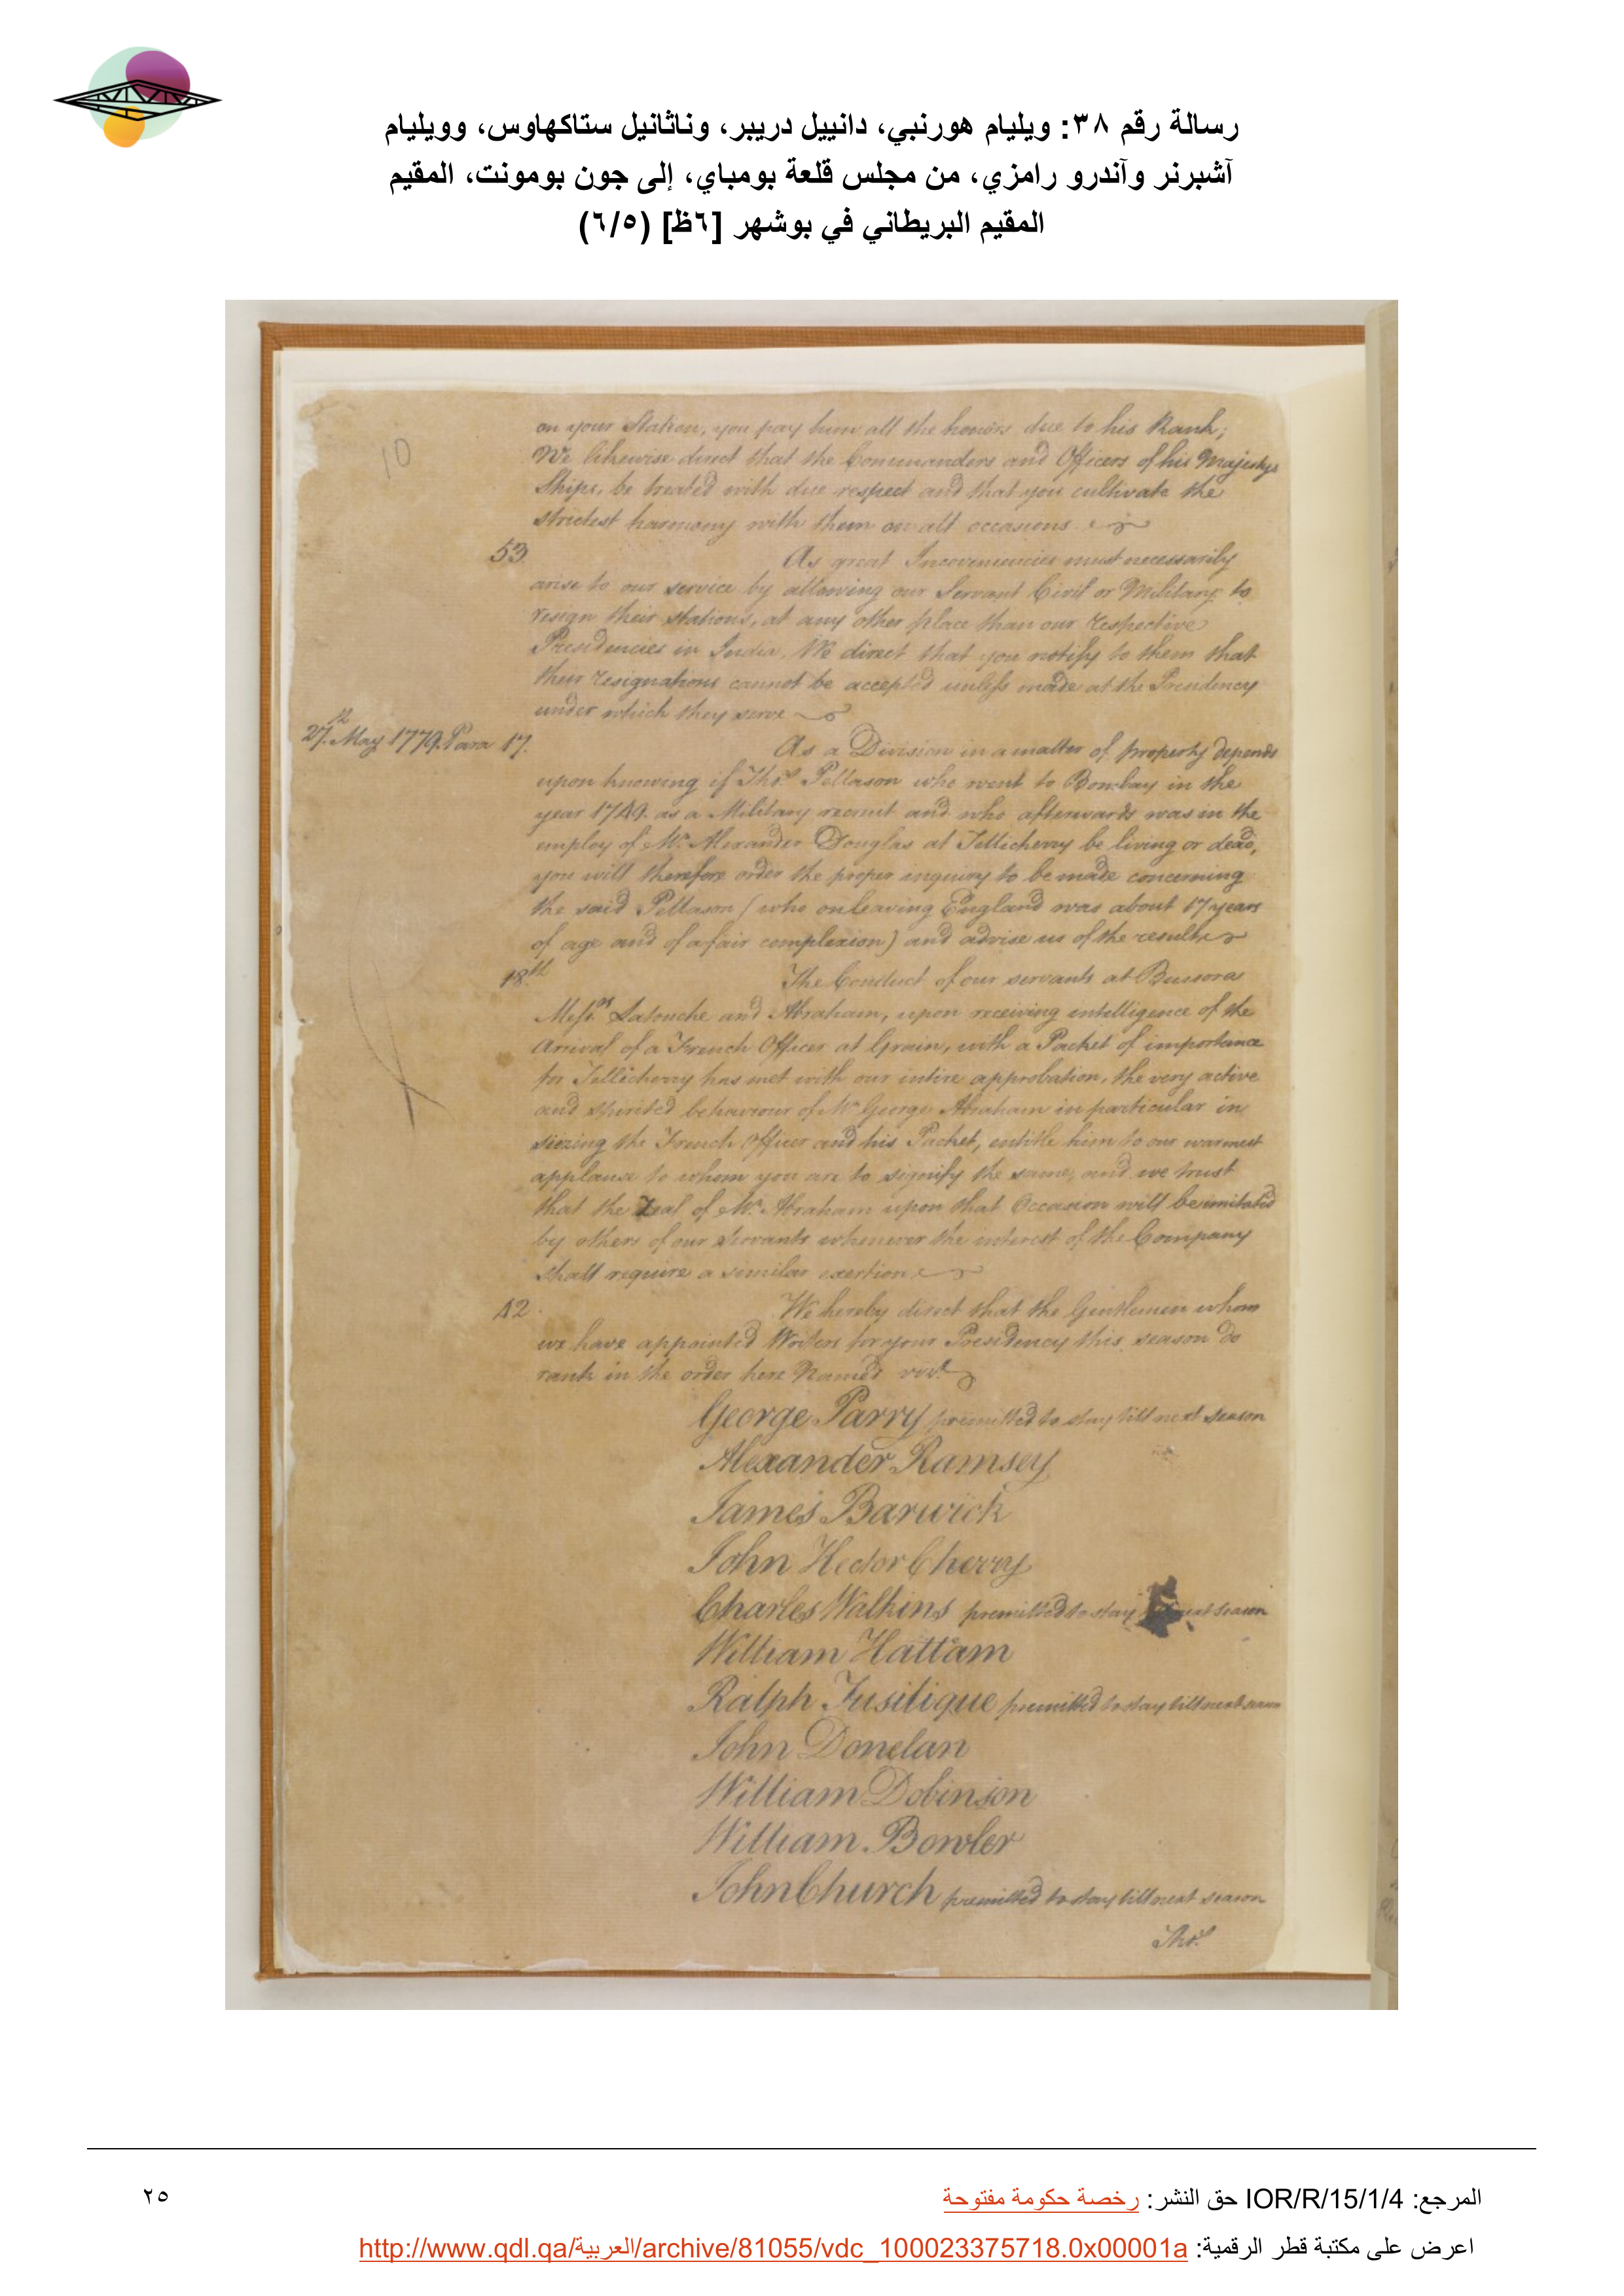 رسالة رقم ٣٨: ويليام هورنبي، دانييل دريبر، وناثانيل ستاكهاوس، وويليام
آشبرنر وآندرو رامزي، من مجلس قلعة بومباي، إلى جون بومونت، المقيم
المقيم البريطاني في بوشهر [٦ظ] (٦/٥)
10
on your Station, you pay him all the honors due to his Rank;
We likewise direct that the Commanders and Officers of his Majestys
Ships, be treated with due respect and that you cultivate the
strictest harmony with them on all occasions
53 As great Inconveniencies must necessarily
arise to our service by allowing our Servant Civil or Military to
resign their stations, at any other place than our respective
Presidencies in India, We direct that you notify to them that
their resignations cannot be accepted unless made at the Presidency
under which they serve
27th May 1779. Para 17. As a Division in a matter of property depends
upon knowing if Thos. Pellason who went to Bombay in the
year 1749. as a Military recruit and who afterwards was in the
employ of Mr. Alexander Douglas at Tellicherry be living or dead,
you will therefore order the proper inquiry to be made concerning
the said Pellason (who on leaving England was about 17 years
of age and of a fair complexion) and advise us of the result
18th The Conduct of our servants at Bussora
Messrs. Latouche and Abraham, upon receiving intelligence of the
Arrival of a French Officer at Grain, with a Packet of importance
for Tellicherry has met with our intire approbation, the very active
and spirited behaviour of Mr. George Abraham in particular in
siezing the French Officer and his Packet, entitle him to our warmest
applause to whom you are to signify the same, and we trust
that the Zeal of Mr. Abraham upon that Occasion will be imitated
by others of our Servants whenever the interest of the Company
shall require a similar exertion
42. We hereby direct that the Gentlemen whom
we have appointed Writers for your Presidency this season do
rank in the order here Named vizt.
George Parry premitted to stay till next season
Alexander Ramsey
James Barwick
John Hector Cherry
Charles Watkins premitted to stay next season
William Hattam
Ralph Fusilique premitted to stay till next season
John Donelan
William Dobinson
William Bowler
John Church premitted to stay till next season
Thos.
المرجع: IOR/R/15/1/4 حق النشر: رخصة حكومة مفتوحة
٢٥
اعرض على مكتبة قطر الرقمية: http://www.qdl.qa/العربية/archive/81055/vdc_100023375718.0x00001a